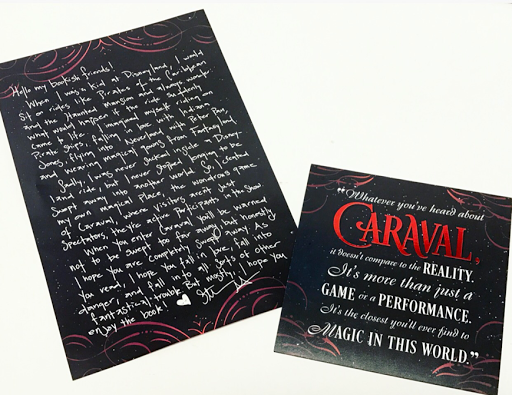 Hello my bookish friends!
When I was a kid at Disneyland, I would
sit on rides like Pirates of the Caribbean
and the Haunted Mansion and always wonder
What would happen if the ride suddenly
came to life. I imagined myself riding on
Pirate ships, falling in love with Indiana
Jones, flying into Neverland with Peter Pan,
and wearing magical gowns from Fantasy land.
Sadly, I was never sucked inside a Disney
land ride, but I never stopped longing to be
Swept away into another world. So, I created
my own magical place, the wondrous game
of Caraval, where visitors aren't just the show
Spectators, they're active Participants.
When you enter Caraval You'll be warned
not to be swept too far away but honestly
I hope you are completely swept away. As
you read, I hope you fall in love, fall into
danger, and fall into all sorts of other
fantastical trouble. But mostly, I hope you
enjoy the book!
"Whatever you've heard about
CARAVAL,
it doesn't compare to the REALITY.
It's more than just a
GAME or a PERFORMANCE.
It's the closest you'll ever find to
MAGIC IN THIS WORLD."